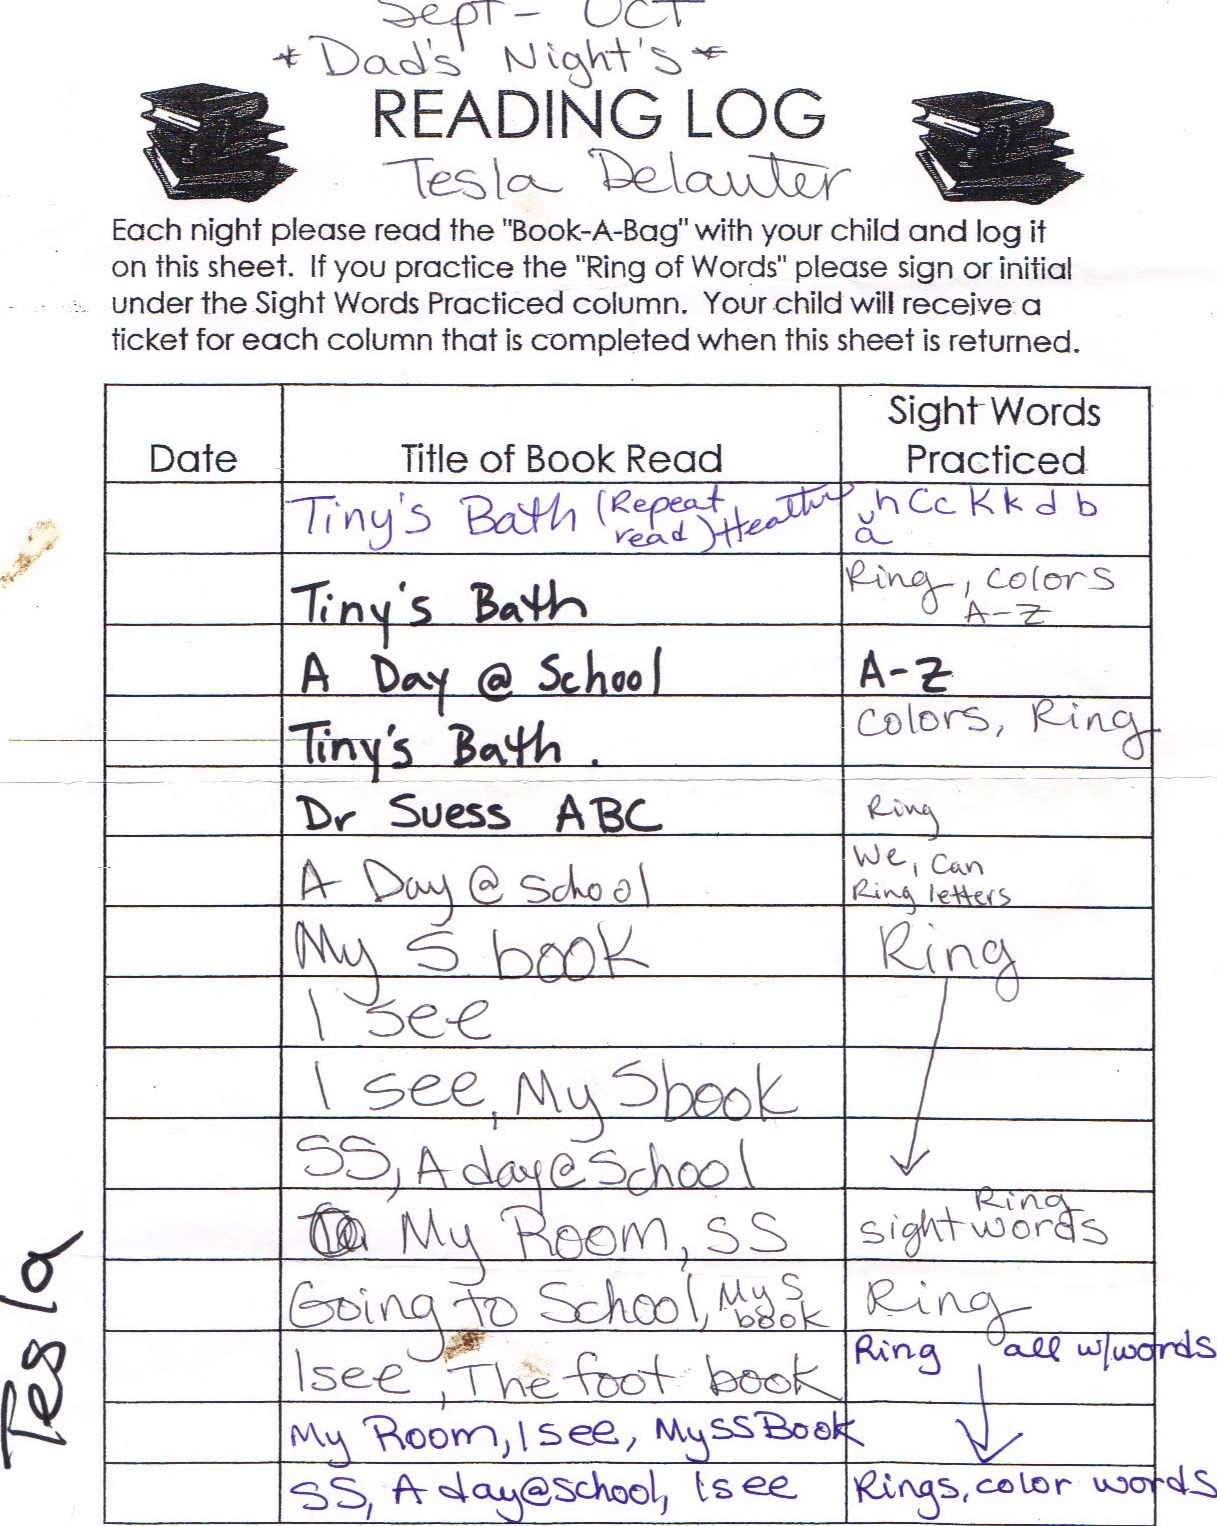 Sept - OCT
* Dad's Night's *
READING LOG
Tesla Delauter
Each night please read the "Book-A-Bag" with your child and log it
on this sheet. If you practice the "Ring of Words" please sign or initial
under the Sight Words Practiced column. Your child will receive a
ticket for each column that is completed when this sheet is returned.
Date Title of Book Read Sight Words Practiced
Tiny's Bath (Repeat read) h Cc Kk d b a
Tiny's Bath Ring, colors A-Z
A Day @ School A-Z
Tiny's Bath. Colors, Ring
Dr Suess ABC Ring
A Day @ School We, Can Ring letters
My S book Ring
I see
I see, My S book
SS, A day @ School
My Room, SS Ring sight words
Going to School, My S book Ring
I see, The foot book Ring all w/words
My Room, I see, My SS Book
SS, A day @ school, I see Rings, color words
Tesla